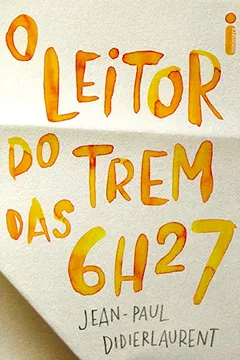 O
LEITOR
DO TREM
DAS
6H27
JEAN-PAUL
DIDIERLAURENT